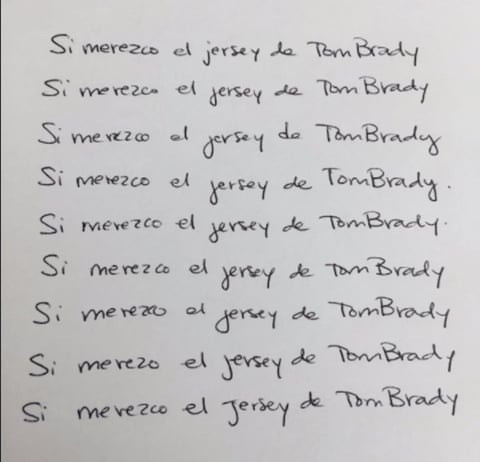 Si merezco el jersey de Tom Brady
Si merezco el jersey de Tom Brady
Si merezco el jersey de Tom Brady
Si merezco el jersey de Tom Brady.
Si merezco el jersey de Tom Brady.
Si merezco el jersey de Tom Brady
Si merezco el jersey de Tom Brady
Si merezo el jersey de Tom Brady
Si merezco el Jersey de Tom Brady